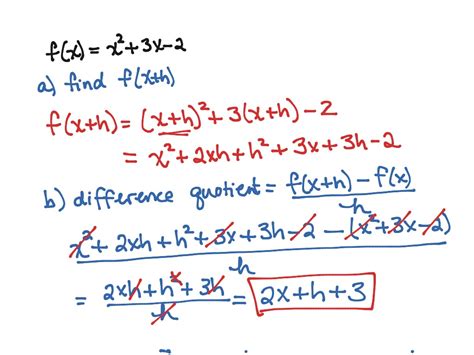 f(x) = x² + 3x - 2
a) find f(x+h)
f(x+h) = (x+h)² + 3(x+h) - 2
= x² + 2xh + h² + 3x + 3h - 2
b) difference quotient = (f(x+h) - f(x)) / h
(x² + 2xh + h² + 3x + 3h - 2 - (x² + 3x - 2)) / h
= (2xh + h² + 3h) / h = 2x + h + 3